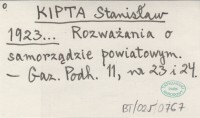 KIPTA Stanisław
1923... Rozważania o
samorządzie powiatowym.
– Gaz. Podh. 11, na 23 i 24.
BT/005/0767